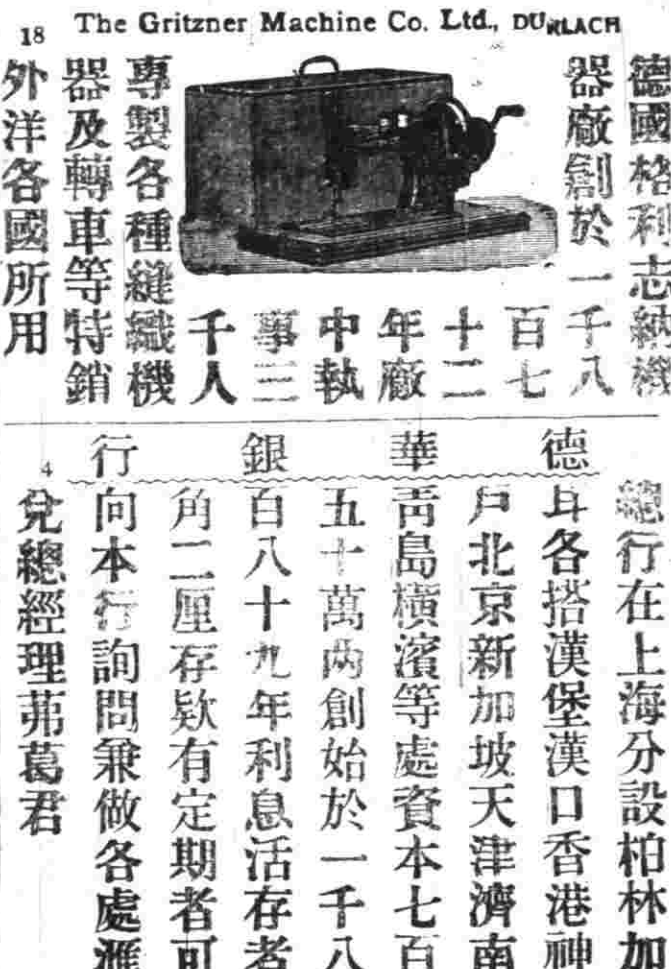 18
The Gritzner Machine Co. Ltd., DURLACH
德國格利志納機
器廠創於一千八
百七
十二
年廠
中執
事三
千人
專製各種縫織機
器及轉車等特銷
外洋各國所用
德華銀行
總行在上海分設柏林加
耳各搭漢堡漢口香港神
戶北京新加坡天津濟南
青島橫濱等處資本七百
五十萬两創始於一千八
百八十九年利息活存者
角二厘存欵有定期者可
向本行詢問兼做各處滙
兌總經理茀葛君
4